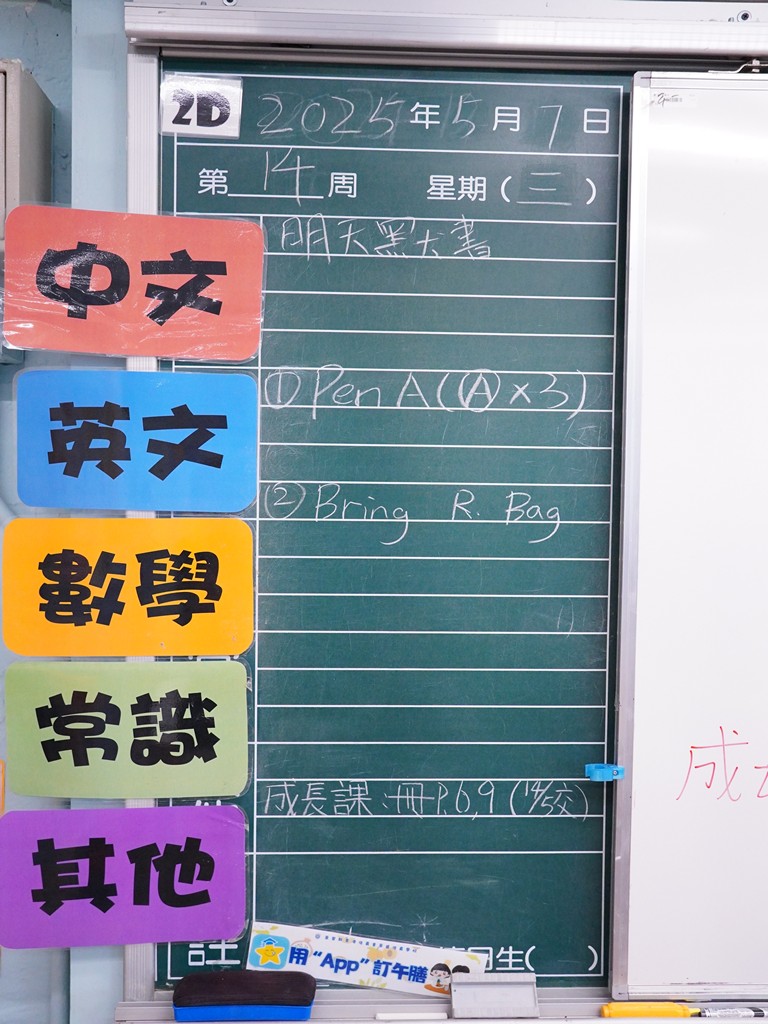 2D 2025年5月7日
第14周 星期(三)
中文
明天黑犬書
英文
①Pen A(Ⓐ×3)
②Bring R. Bag
數學
常識
成長課:冊P.6,9(14/5交)
其他
註
生( )
用“App”訂午膳
成